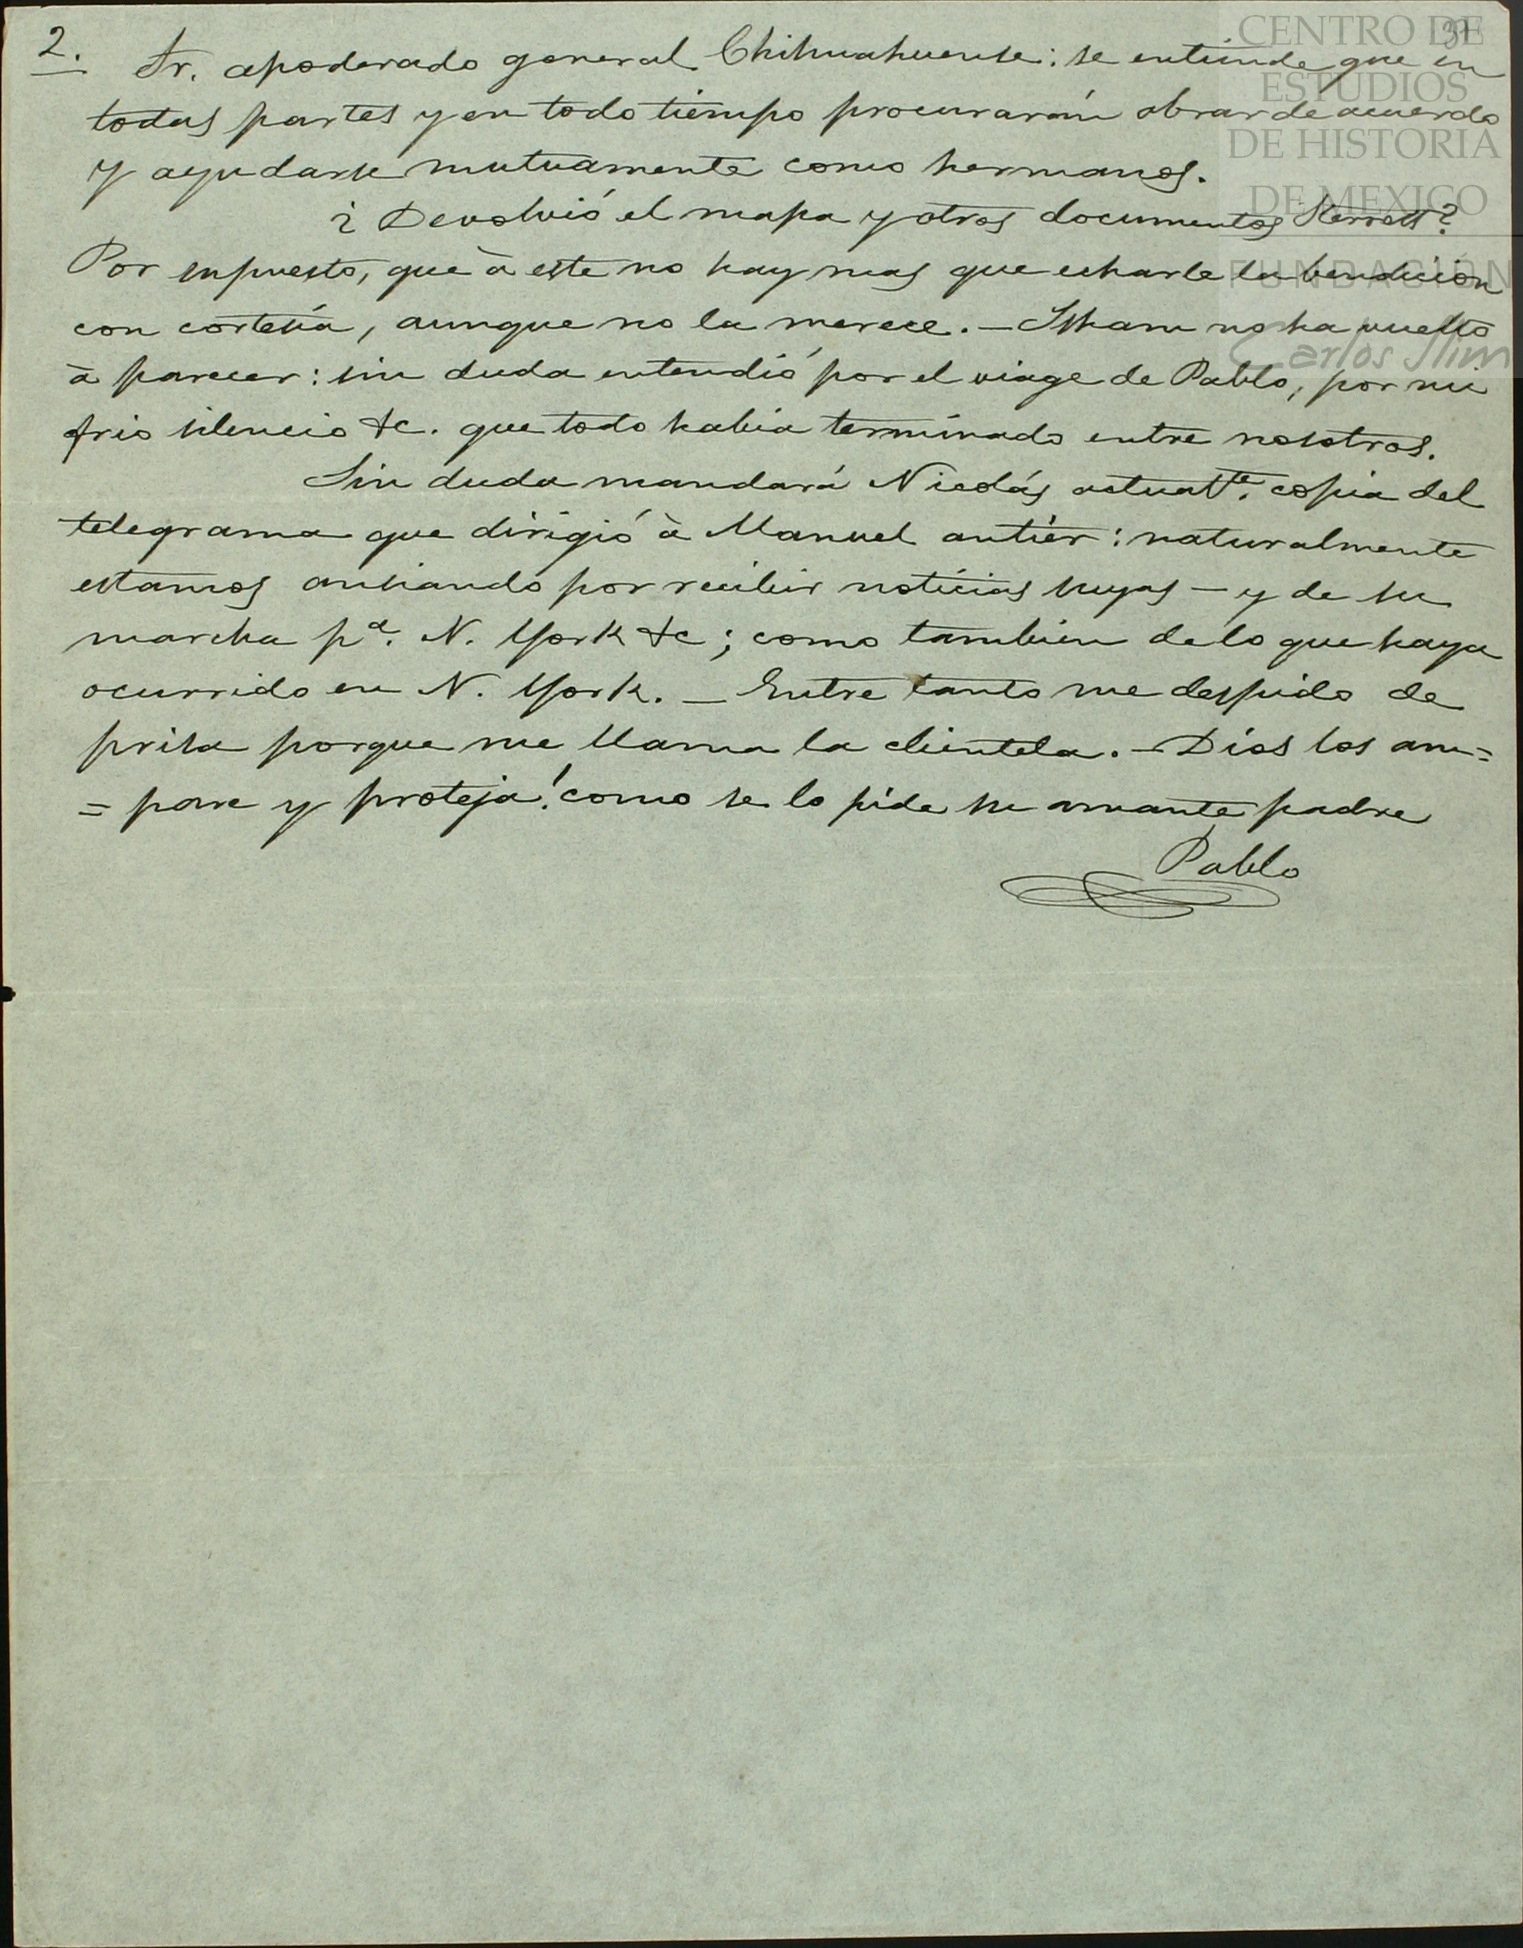 2.
Sr. apoderado general Chihuahuense: se entiende que en
todas partes y en todo tiempo procurarán obrar de acuerdo
y ayudarse mutuamente como hermanos.
¿Devolvió el mapa y otros documentos Sterrett?
Por supuesto, que à este no hay mas que echarle la bendición
con cortesía, aunque no la merece. — no ha vuelto
à parecer: sin duda entendió por el viage de Pablo, por mi
frio silencio &c. que todo habia terminado entre nosotros.
Sin duda mandará Nicolás actualte. copia del
telegrama que dirigió à Manuel antiér: naturalmente
estamos ansiando por recibir noticias suyas — y de su
marcha pa. N. York &c; como tambien de lo que haya
ocurrido en N. York. — Entre tanto me despido de
prisa porque me llama la clientela. — Dios los am=
=pare y proteja! como se lo pide su amante padre
Pablo
CENTRO DE
ESTUDIOS
DE HISTORIA
DE MEXICO
FUNDACIÓN
Carlos Slim